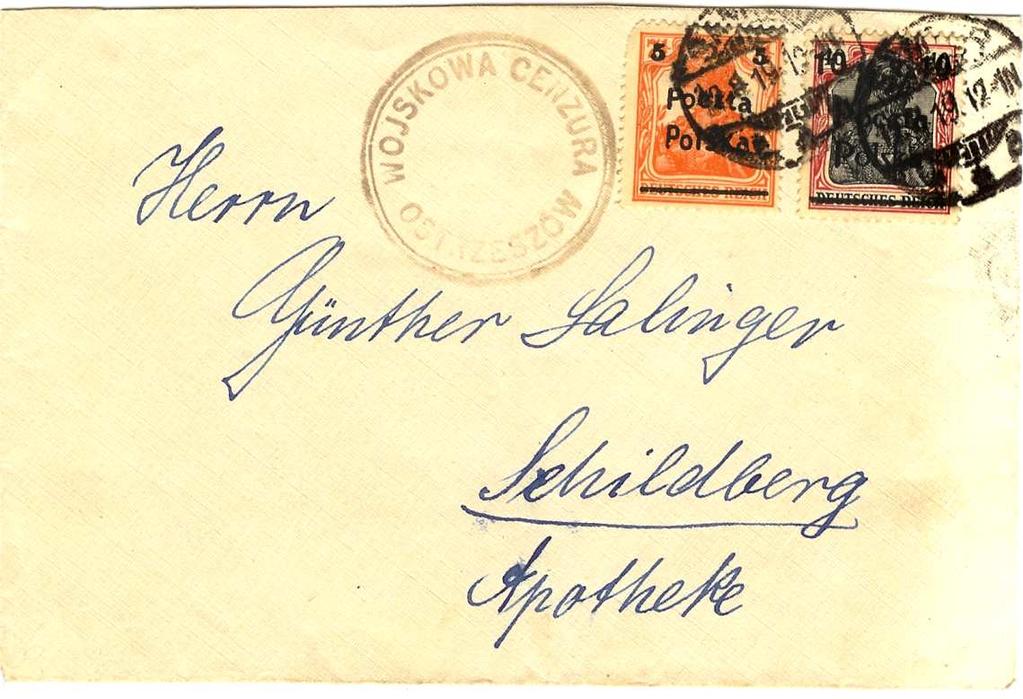 WOJSKOWA CENZURA
5 5
Poczta
Polska
DEUTSCHES REICH
10 10
DEUTSCHES REICH
12-1N
Herrn
Günther Salinger
Schildberg
Apotheke